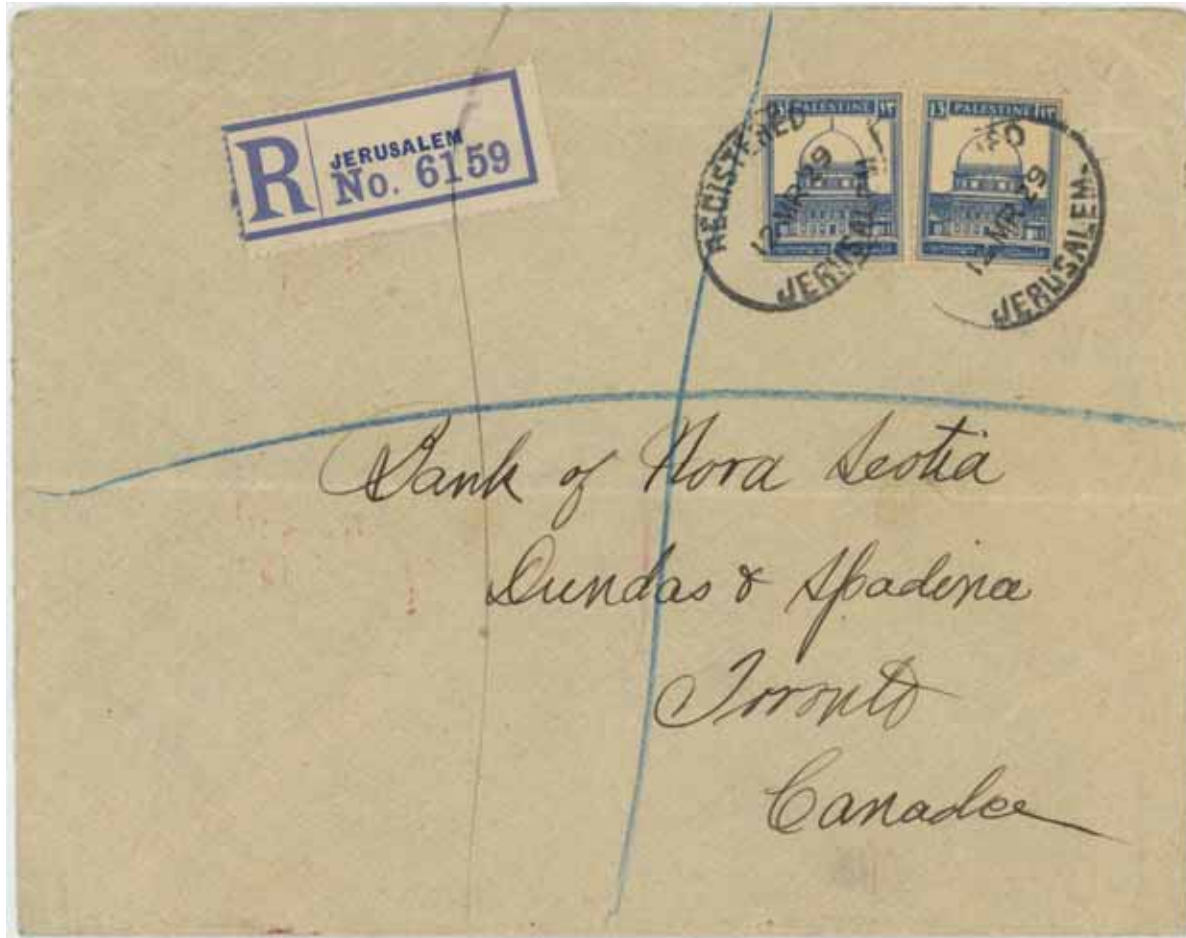 R
JERUSALEM
No. 6159
13 PALESTINE ١٣
13 PALESTINE ١٣
REGISTERED
12 MR 29
JERUSALEM
12 MR 29
JERUSALEM
Bank of Nova Scotia
Dundas & Spadina
Toronto
Canada